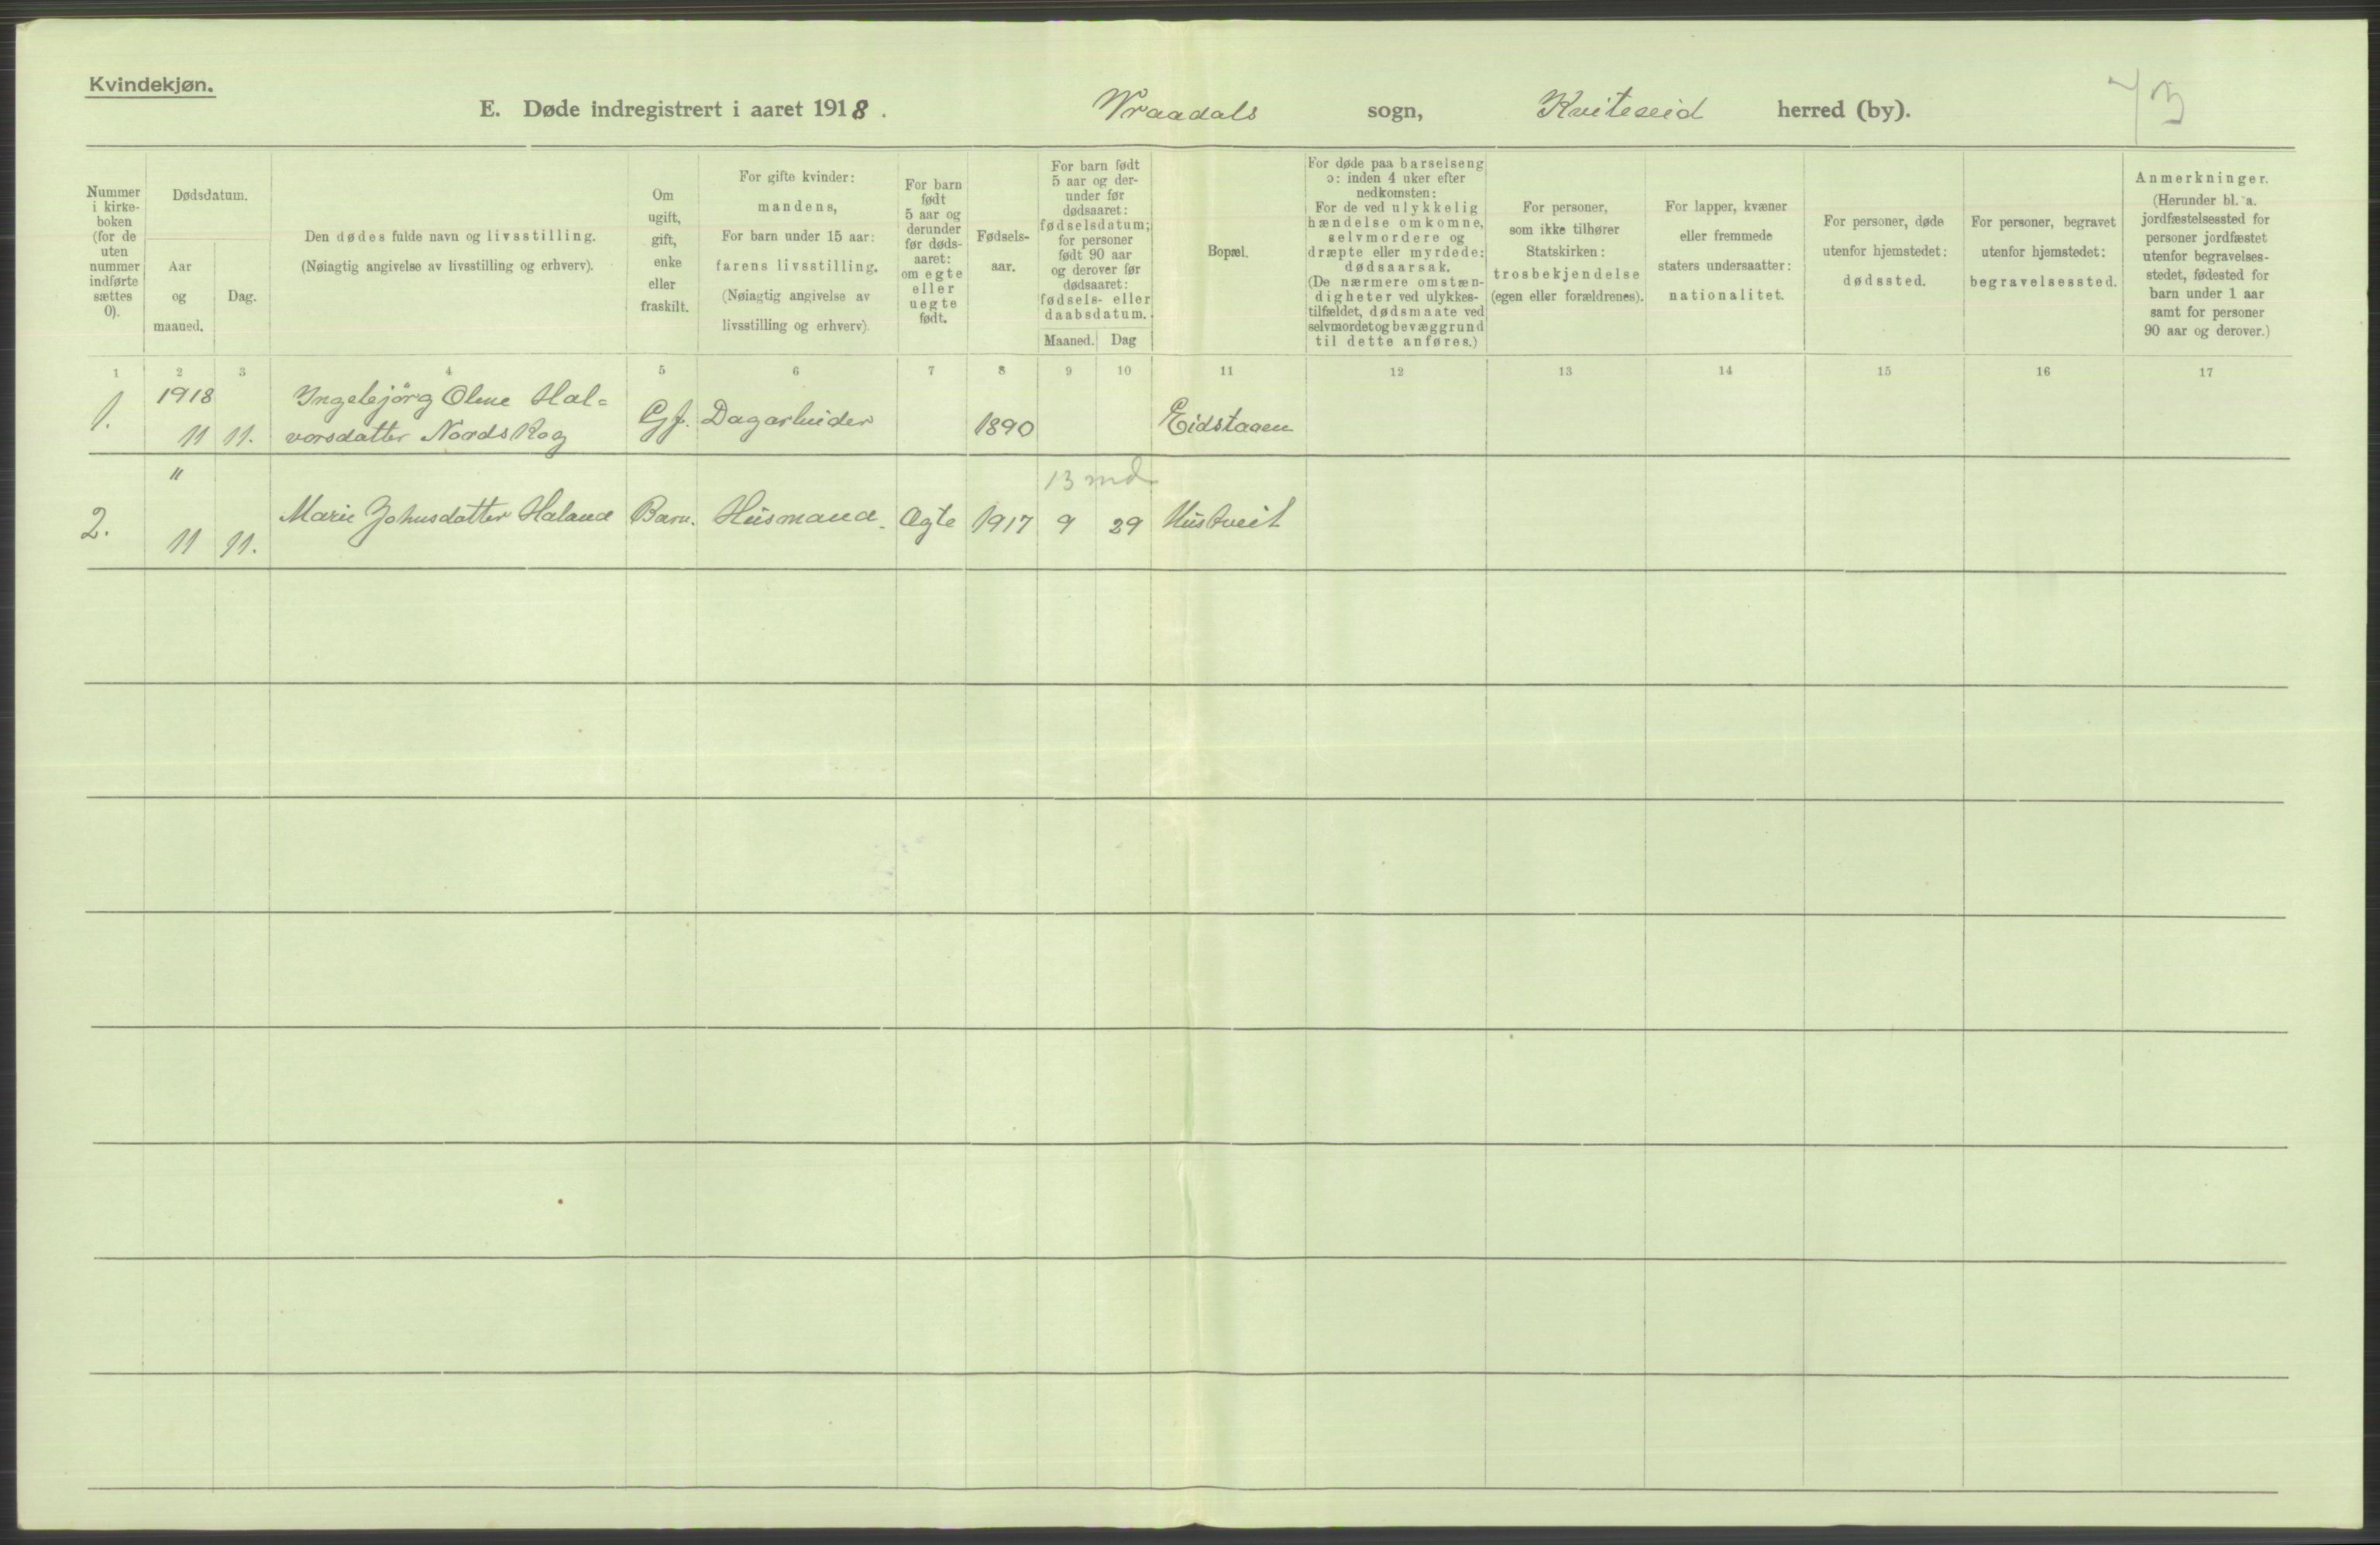 Kvindekjøn.
E. Døde indregistrert i aaret 1918. Vraadals sogn, Kviteseid herred (by).
73
Nummer i kirke-boken (for de uten nummer indførte sættes 0).
Dødsdatum.
Aar og maaned.
Dag.
Den dødes fulde navn og livsstilling.
(Nøiagtig angivelse av livsstilling og erhverv).
Om ugift, gift, enke eller fraskilt.
For gifte kvinder: mandens,
For barn under 15 aar: farens livsstilling.
(Nøiagtig angivelse av livsstilling og erhverv).
For barn født 5 aar og derunder før døds-aaret: om egte eller uegte født.
Fødsels-aar.
For barn født 5 aar og der-under før dødsaaret: fødselsdatum; for personer født 90 aar og derover før dødsaaret: fødsels- eller daabsdatum.
Maaned. Dag
Bopæl.
For døde paa barselseng ɔ: inden 4 uker efter nedkomsten:
For de ved ulykkelig hændelse omkomne, selvmordere og dræpte eller myrdede: dødsaarsak.
(De nærmere omstæn-digheter ved ulykkes-tilfældet, dødsmaate ved selvmordet og bevæggrund til dette anføres.)
For personer, som ikke tilhører Statskirken: trosbekjendelse (egen eller forældrenes).
For lapper, kvæner eller fremmede staters undersaatter: nationalitet.
For personer, døde utenfor hjemstedet: dødssted.
For personer, begravet utenfor hjemstedet: begravelsessted.
Anmerkninger.
(Herunder bl. a. jordfæstelsessted for personer jordfæstet utenfor begravelses-stedet, fødested for barn under 1 aar samt for personer 90 aar og derover.)
1 2 3 4 5 6 7 8 9 10 11 12 13 14 15 16 17
1918 Ingebjörg Oline Hal=
1. 11 11. vorsdatter Nordskog Gf. Dagarbeider 1890 Eidstaaen
" 13 md.
2. 11 11. Marie Johnsdatter Haland Barn. Husmand. Ægte 1917 9 29 Hustveit